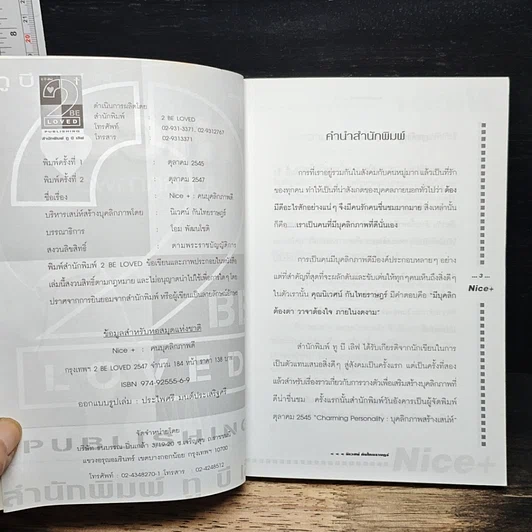 2 BE
LOVED
PUBLISHING
สำนักพิมพ์ ทู บี เลิฟ
ดำเนินการผลิตโดย
สำนักพิมพ์ : 2 BE LOVED
โทรศัพท์ : 02-931-3371, 02-9312767
โทรสาร : 02-9313371
พิมพ์ครั้งที่ 1 : ตุลาคม 2545
พิมพ์ครั้งที่ 2 : ตุลาคม 2547
ชื่อเรื่อง : Nice + : คนบุคลิกภาพดี
บริหารเสน่ห์สร้างบุคลิกภาพโดย : นิเวศน์ กันไทยราษฎร์
บรรณาธิการ : โอม พัฒนโชติ
สงวนลิขสิทธิ์ : ตามพระราชบัญญัติการ
พิมพ์สำนักพิมพ์ 2 BE LOVED ข้อเขียนและภาพประกอบในหนังสือ
เล่มนี้สงวนสิทธิ์ตามกฎหมาย และไม่อนุญาตนำไปใช้เพื่อการใดๆ โดย
ปราศจากการยินยอมจากสำนักพิมพ์ หรือผู้เขียนเป็นลายลักษณ์อักษร
ข้อมูลสำหรับหอสมุดแห่งชาติ
Nice + : คนบุคลิกภาพดี
กรุงเทพฯ 2 BE LOVED 2547 จำนวน 184 หน้า ราคา 138 บาท
ISBN 974-92555-6-9
ออกแบบรูปเล่ม : ประไพศรี มนต์ประเสริฐดี
จัดจำหน่ายโดย
โทรศัพท์ : 02-4348270-1 โทรสาร : 02-4248512
PUBLISHING
สำนักพิมพ์ ทู บี
คำนำสำนักพิมพ์
การที่เราอยู่ร่วมกันในสังคมกับคนหมู่มาก แล้วเป็นที่รัก
ของทุกคน ทำให้เป็นที่น่าสังเกตของบุคคลภายนอกทั่วไปว่า ต้อง
มีดีอะไรสักอย่างแน่ๆ จึงมีคนรักคนชื่นชมมากมาย สิ่งเหล่านั้น
ก็คือ.....เราเป็นคนที่มีบุคลิกภาพที่ดีนั่นเอง
การเป็นคนมีบุคลิกภาพดีมีองค์ประกอบหลายๆ อย่าง
แต่ที่สำคัญที่สุดที่จะผลักดันและขับเค่นให้ทุกๆคนเห็นถึงสิ่งดีๆ
ในตัวเรานั้น คุณนิเวศน์ กันไทยราษฎร์ มีคำตอบคือ "มีบุคลิก
ต้องตา วาจาต้องใจ ภายในงดงาม"
สำนักพิมพ์ ทู บี เลิฟ ได้รับเกียรติจากนักเขียนในการ
เป็นตัวแทนเสนอสิ่งดีๆ สู่สังคมเป็นครั้งแรก แต่เป็นครั้งที่สอง
แล้วสำหรับเรื่องราวเกี่ยวกับการวางตัวเพื่อเสริมสร้างบุคลิกภาพที่
ดีน่าชื่นชม ครั้งแรกนั้นสำนักพิมพ์วันอังคารเป็นผู้จัดพิมพ์
ตุลาคม 2545 "Charming Personality : บุคลิกภาพสร้างเสน่ห์"
... 3 ...
Nice+
นิเวศน์ กันไทยราษฎร์
Nice+